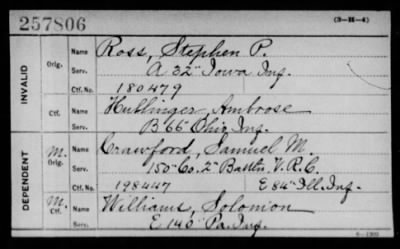 257806 (3-H-4)
INVALID
Orig. Name Ross, Stephen P.
Serv. A 32" Iowa Inf.
Ctf. No. 180479
Ctf. Name Hullinger, Ambrose
Serv. B 66" Ohio Inf.
DEPENDENT
M. Orig. Name Crawford, Samuel M.
Serv. 150" Co. 2" Battn, V.R.C.
Ctf. No. 198447 E 84" Ill. Inf.
M. Ctf. Name Williams, Solomon
Serv. E 140" Pa. Inf.